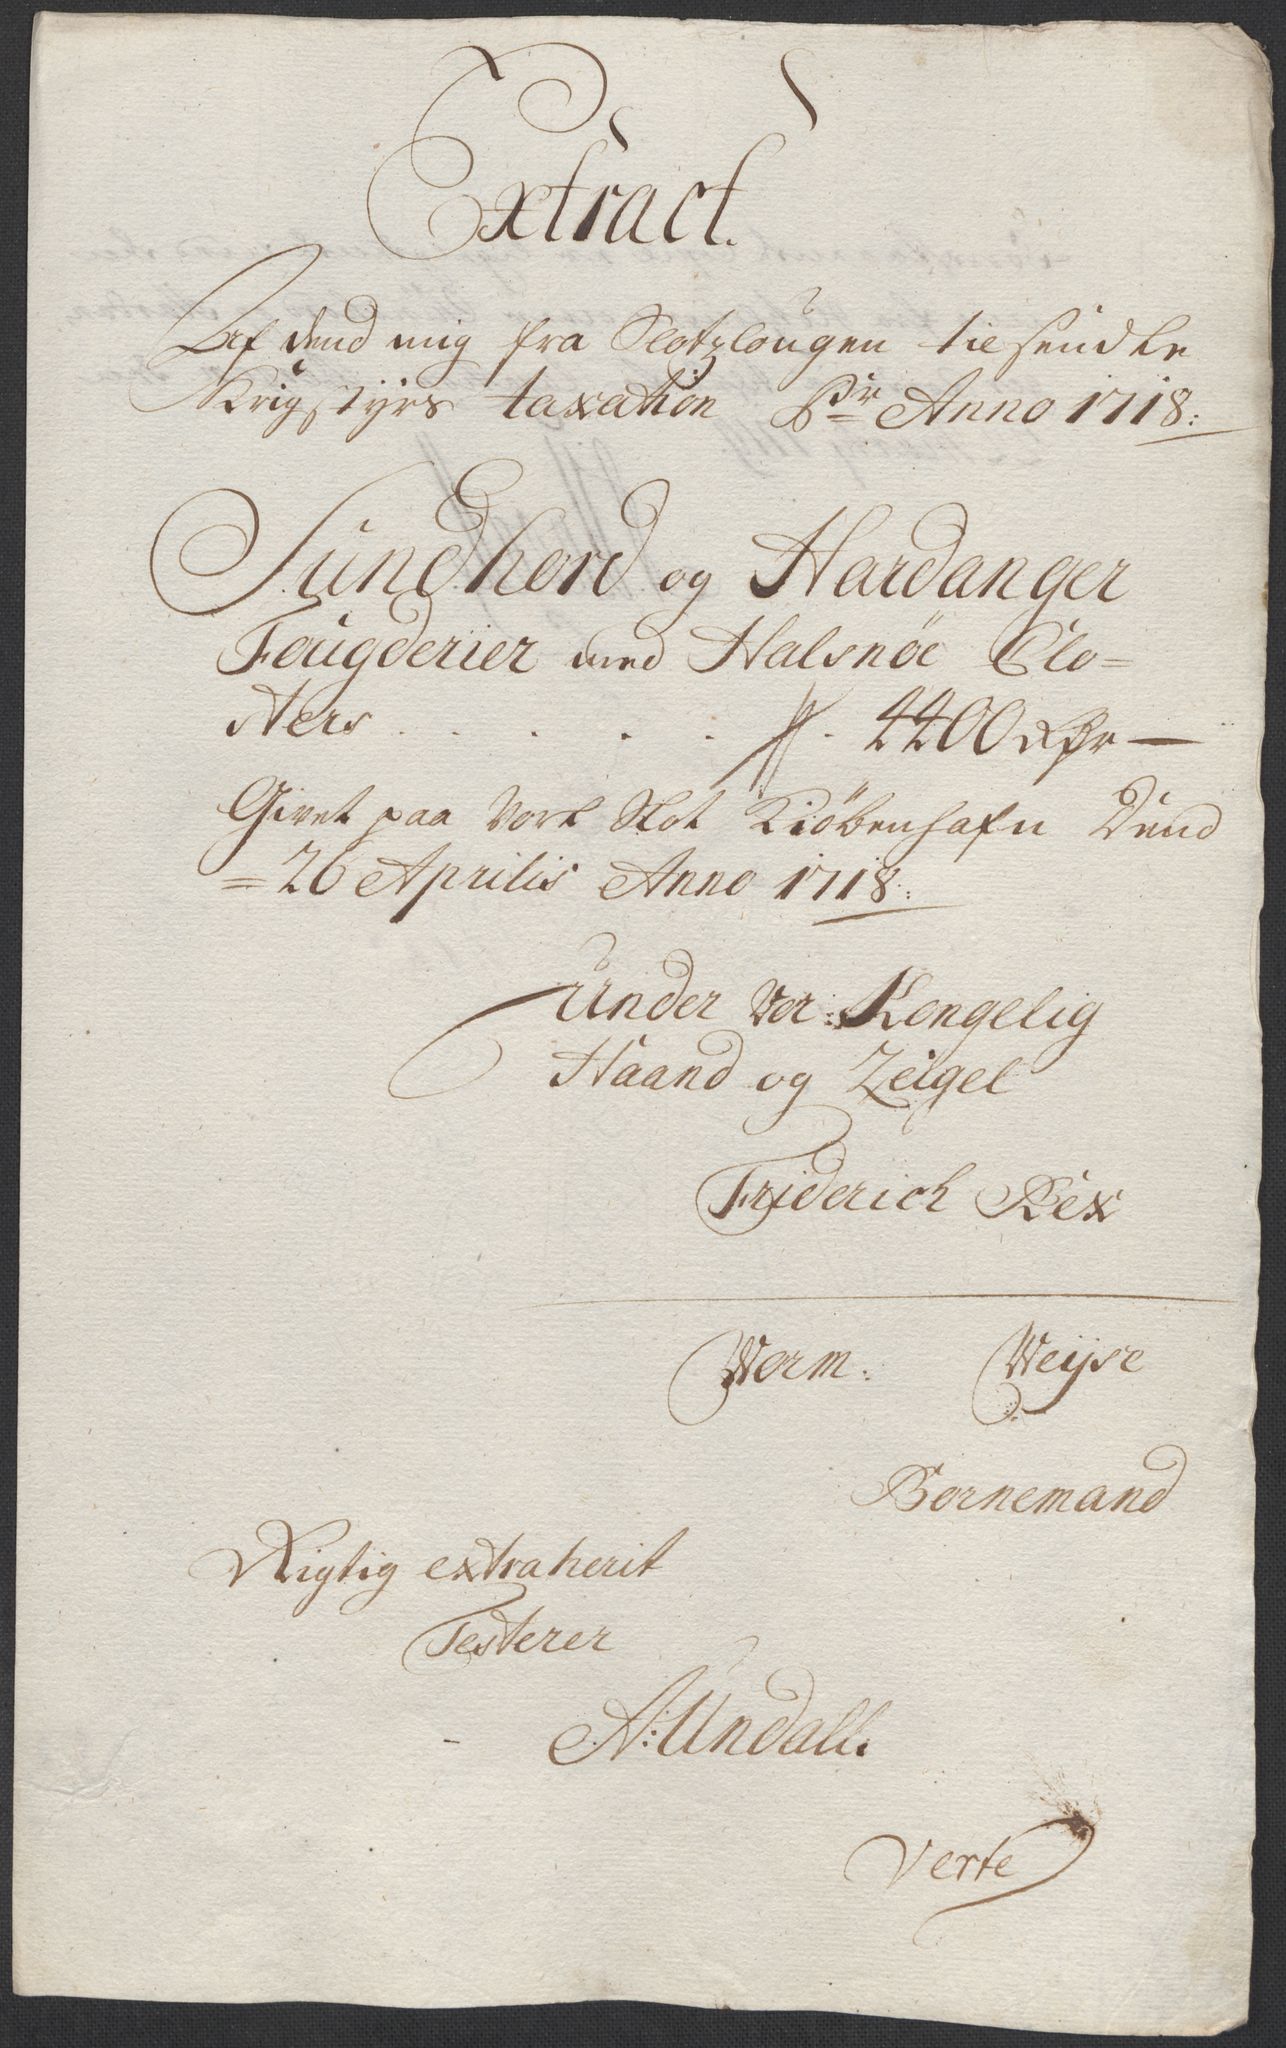 Extract.
Af dend mig fra Slotzlougen tilsendte
Krigstyrs taxation pr Anno 1718:
Sundhord og Hardanger
Fougderier med Halsnöe Clo=
sters . . . . . 4400 Rdr —
Givet paa Vort Slot Kiöbenhafn Dend
= 26 Aprilis Anno 1718:
Under Vor: Kongelig
Haand og Zeigel
Friderich Rex
Worm: Weÿse
Bornemand
Rigtig extraherit
Testerer
A: Undall.
Verte